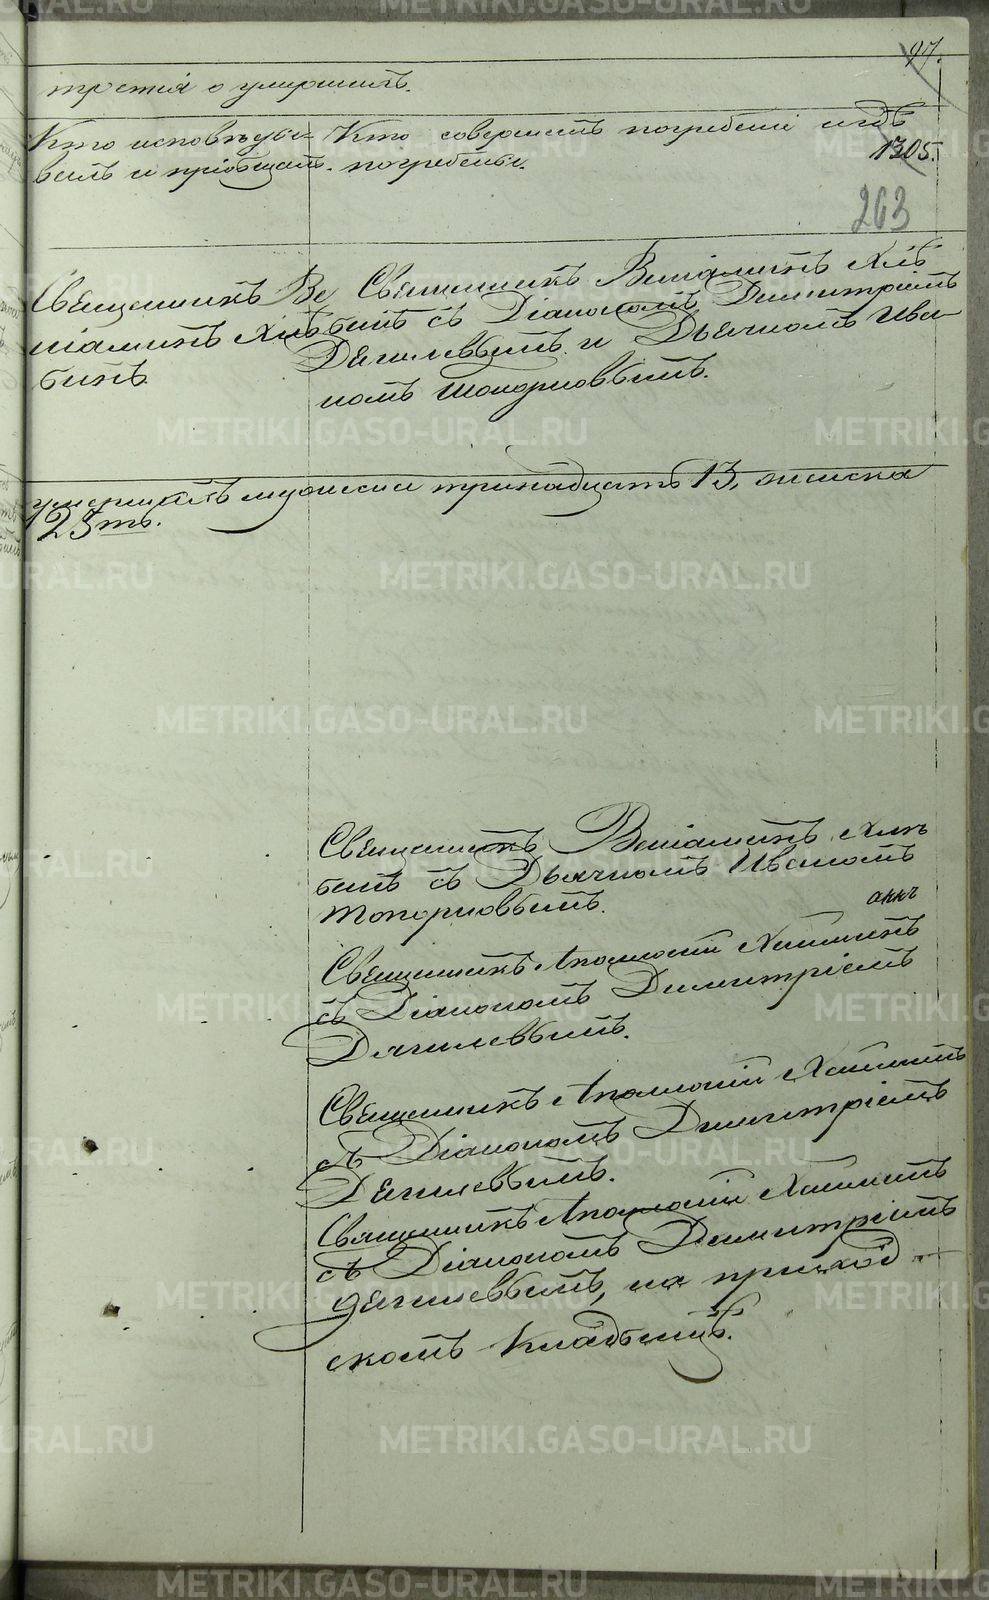 97.
третiя о умершихъ.
Кто исповѣды-
валъ и прiобщалъ.
Кто совершилъ погребенiе и гдѣ
погребены.
1305.
263
Священникъ Ве
нiаминъ Хлѣ
бинъ.
Священникъ Венiаминъ Хлѣ
бинъ съ Дiакономъ Димитрiемъ
Дягилевымъ и Дьячкомъ Ива-
номъ Топорковымъ.
умершихъ мужеска тринадцать 13, женска
12 5ть.
Священникъ Венiаминъ Хлѣ
бинъ съ Дьячкомъ Иваномъ
Топорковымъ.
Священникъ Аполлонiй Хашинъ
съ Дiакономъ Димитрiемъ
Дягилевымъ.
Священникъ Аполлонiй Хашинъ
съ Дiакономъ Димитрiемъ
Дягилевымъ.
Священникъ Аполлонiй Хашинъ
съ Дiакономъ Димитрiемъ
Дягилевымъ, на приход-
скомъ Кладбищѣ.
METRIKI.GASO-URAL.RU